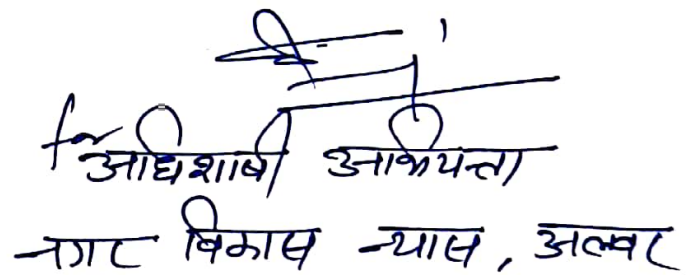 for अधिशाषी अभियन्ता
नगर विकास न्यास, अलवर